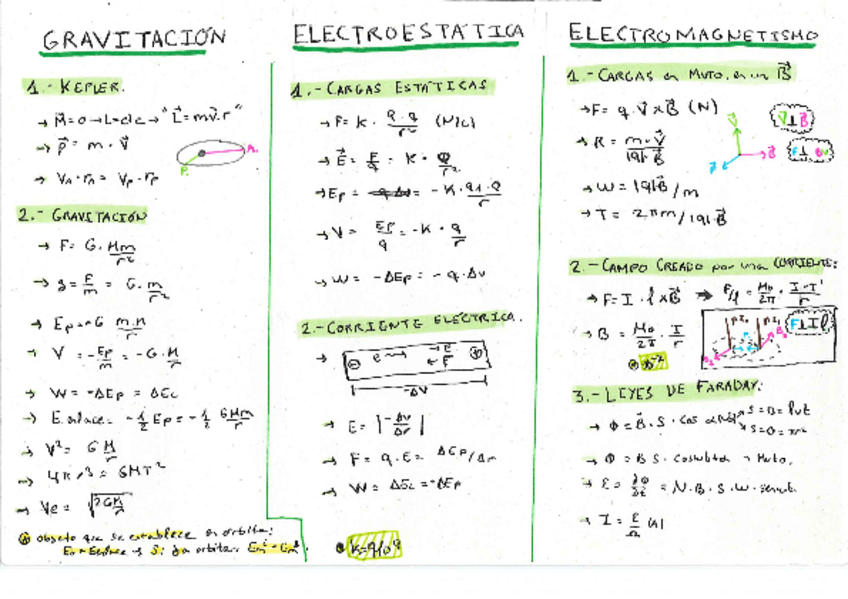 GRAVITACIÓN
1.- KEPLER.
→ M=0 → L=cte → "L⃗=mv⃗.r"
→ p⃗ = m · v⃗
→ VA·rA = Vp·rp
P.
A.
2.- GRAVITACIÓN
→ F= G. Mm/r²
→ g = F/m = G. m/r²
→ Ep=-G m.M/r
→ V = -Ep/m = -G·M/r
→ W = -ΔEp = ΔEc
→ E.enlace = -1/2 Ep = -1/2 GMm/r
→ V² = G M/r
→ 4π²r³ = GMT²
→ Ve = √2GM/r
objeto que se establece en orbita:
ELECTROESTÁTICA
1.- CARGAS ESTÁTICAS
→ F= K · q·q/r² (N/C)
→ E⃗ = F/q = K · Q/r²
→ Ep = = -K·q1·Q/r
→ V= Ep/q = -K · q/r
→ W = -ΔEp = -q·Δv
2.-CORRIENTE ELÉCTRICA.
→ ⊖ e → → E ← F ⊕
-ΔV
→ E = |-Δv/Δr|
→ F = q·E = ΔEp/Δr
→ W = ΔEc = -ΔEp
K=9·10⁹
ELECTROMAGNETISMO
1.- CARGAS en Mvto. en un B⃗
→ F= q. V⃗ x B⃗ (N)
→ R = m·V⃗/|q|·B⃗
V⃗ ⊥ B⃗
V⃗
B⃗
F⃗
F ⊥ Bv
→ W = |q|B/m
→ T = 2πm/|q|·B⃗
2.- CAMPO CREADO por una CORRIENTE:
→ F= I · l⃗ x B⃗ → F/l = μ0/2π · I·I'/r
→ B = μ0/2π · I/r
F ⊥ I l
3.- LEYES DE FARADAY:
→ Φ = B⃗·S·cos α
S=□= l·vt
S=O=πr²
→ Φ = B·S·
→ ε = dΦ/dt = N·B·S·W·
→ I = ε/Ω (A)